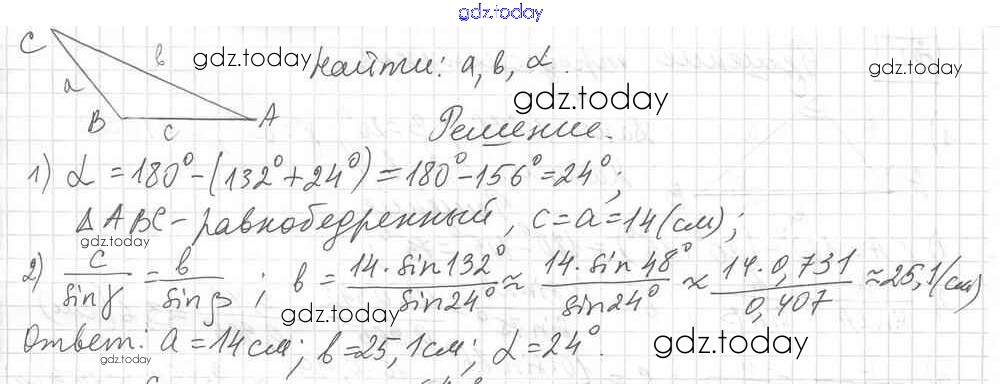 gdz.today
C в gdz.today Найти: a, в, α. gdz.today
a
gdz.today
B c A Решение.
1) α = 180° - (132° + 24°) = 180° - 156° = 24°;
Δ ABC - равнобедренный, c = a = 14 (см);
gdz.today
2) c/sin γ = в/sin β; в = 14·sin 132°/sin 24° ≈ 14·sin 48°/sin 24° ≈ 14·0,731/0,407 ≈ 25,1 (см)
gdz.today
Ответ: a = 14 см; в = 25,1 см; α = 24°.
gdz.today
gdz.today